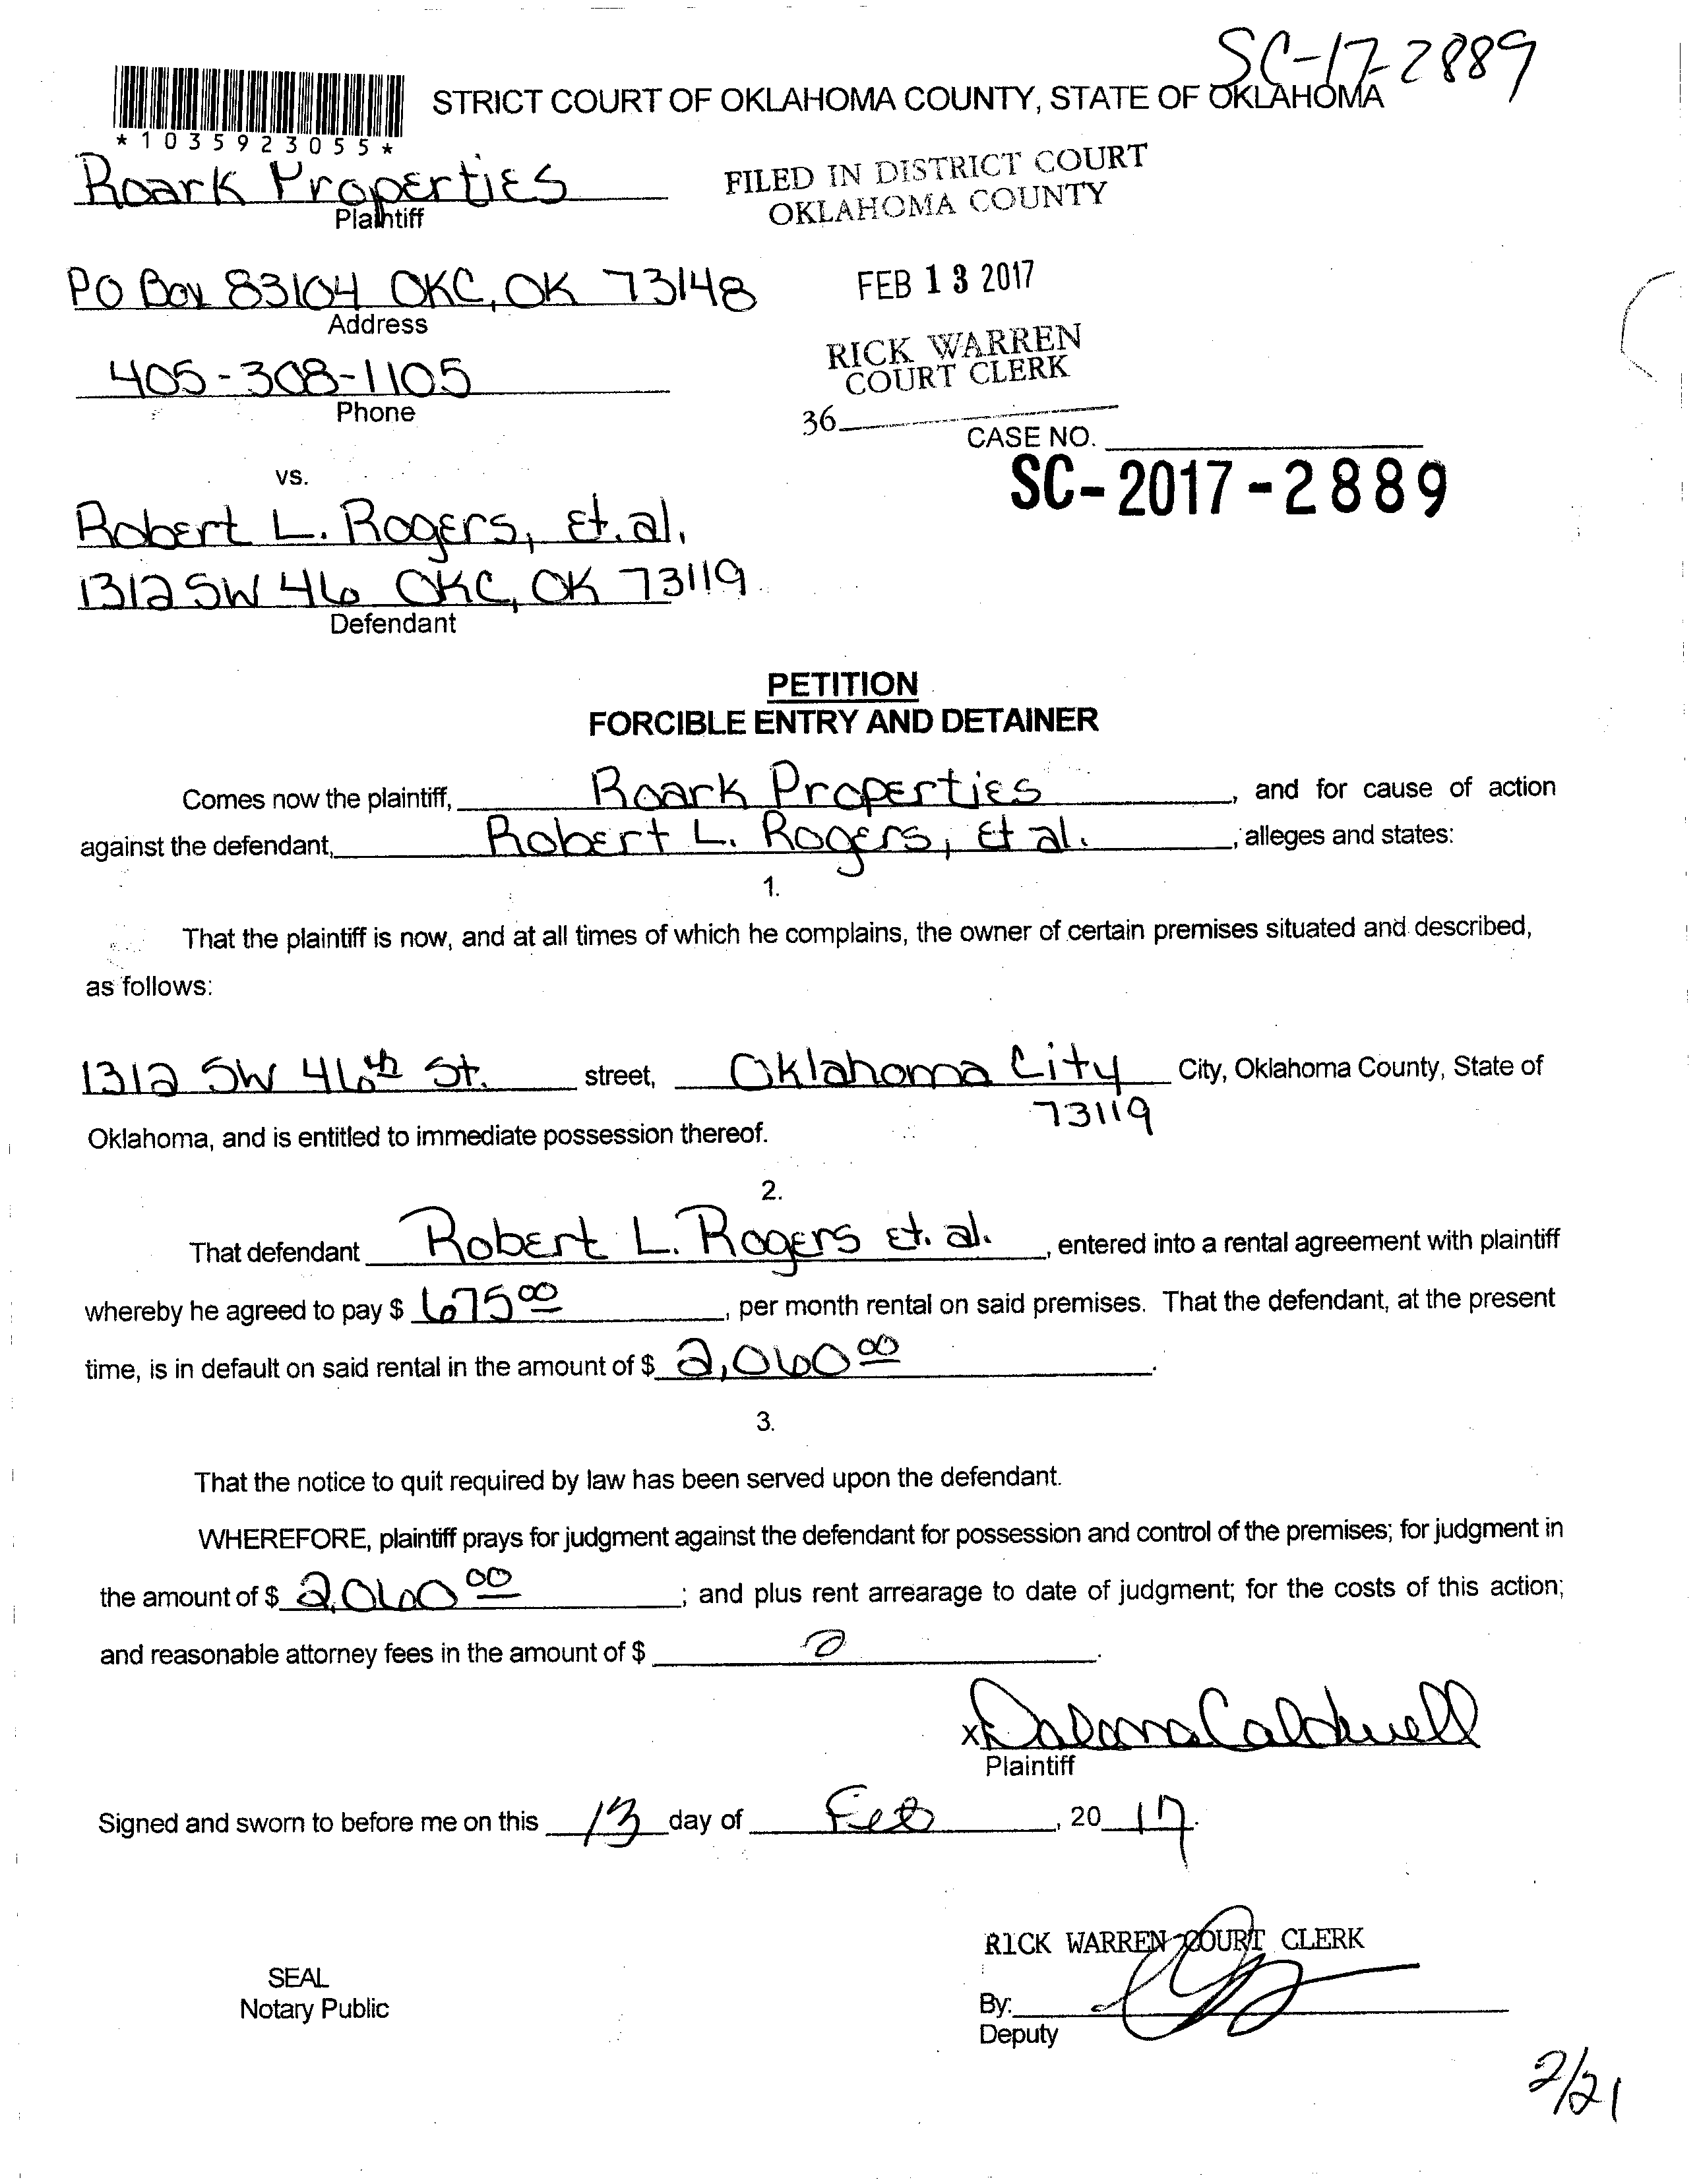 SC-17-2889
STRICT COURT OF OKLAHOMA COUNTY, STATE OF OKLAHOMA
*1035923055*
Roark Properties
Plaintiff
FILED IN DISTRICT COURT
OKLAHOMA COUNTY
PO Box 83104 OKC, OK 73148
Address
FEB 13 2017
405-308-1105
Phone
RICK WARREN
COURT CLERK
36
CASE NO.
SC-2017-2889
vs.
Robert L. Rogers, et. al.
1312 SW 46 OKC, OK 73119
Defendant
PETITION
FORCIBLE ENTRY AND DETAINER
Comes now the plaintiff, Roark Properties, and for cause of action
against the defendant, Robert L. Rogers, et al., alleges and states:
1.
That the plaintiff is now, and at all times of which he complains, the owner of certain premises situated and described,
as follows:
1312 SW 46th St. street, Oklahoma City City, Oklahoma County, State of
73119
Oklahoma, and is entitled to immediate possession thereof.
2.
That defendant Robert L. Rogers et. al., entered into a rental agreement with plaintiff
whereby he agreed to pay $ 675 00, per month rental on said premises. That the defendant, at the present
time, is in default on said rental in the amount of $ 2,060 00.
3.
That the notice to quit required by law has been served upon the defendant.
WHEREFORE, plaintiff prays for judgment against the defendant for possession and control of the premises; for judgment in
the amount of $ 2,060 00; and plus rent arrearage to date of judgment; for the costs of this action;
and reasonable attorney fees in the amount of $ 0.
x Caldwell
Plaintiff
Signed and sworn to before me on this 13 day of Feb, 2017.
RICK WARREN COURT CLERK
SEAL
Notary Public
By:
Deputy
2/21